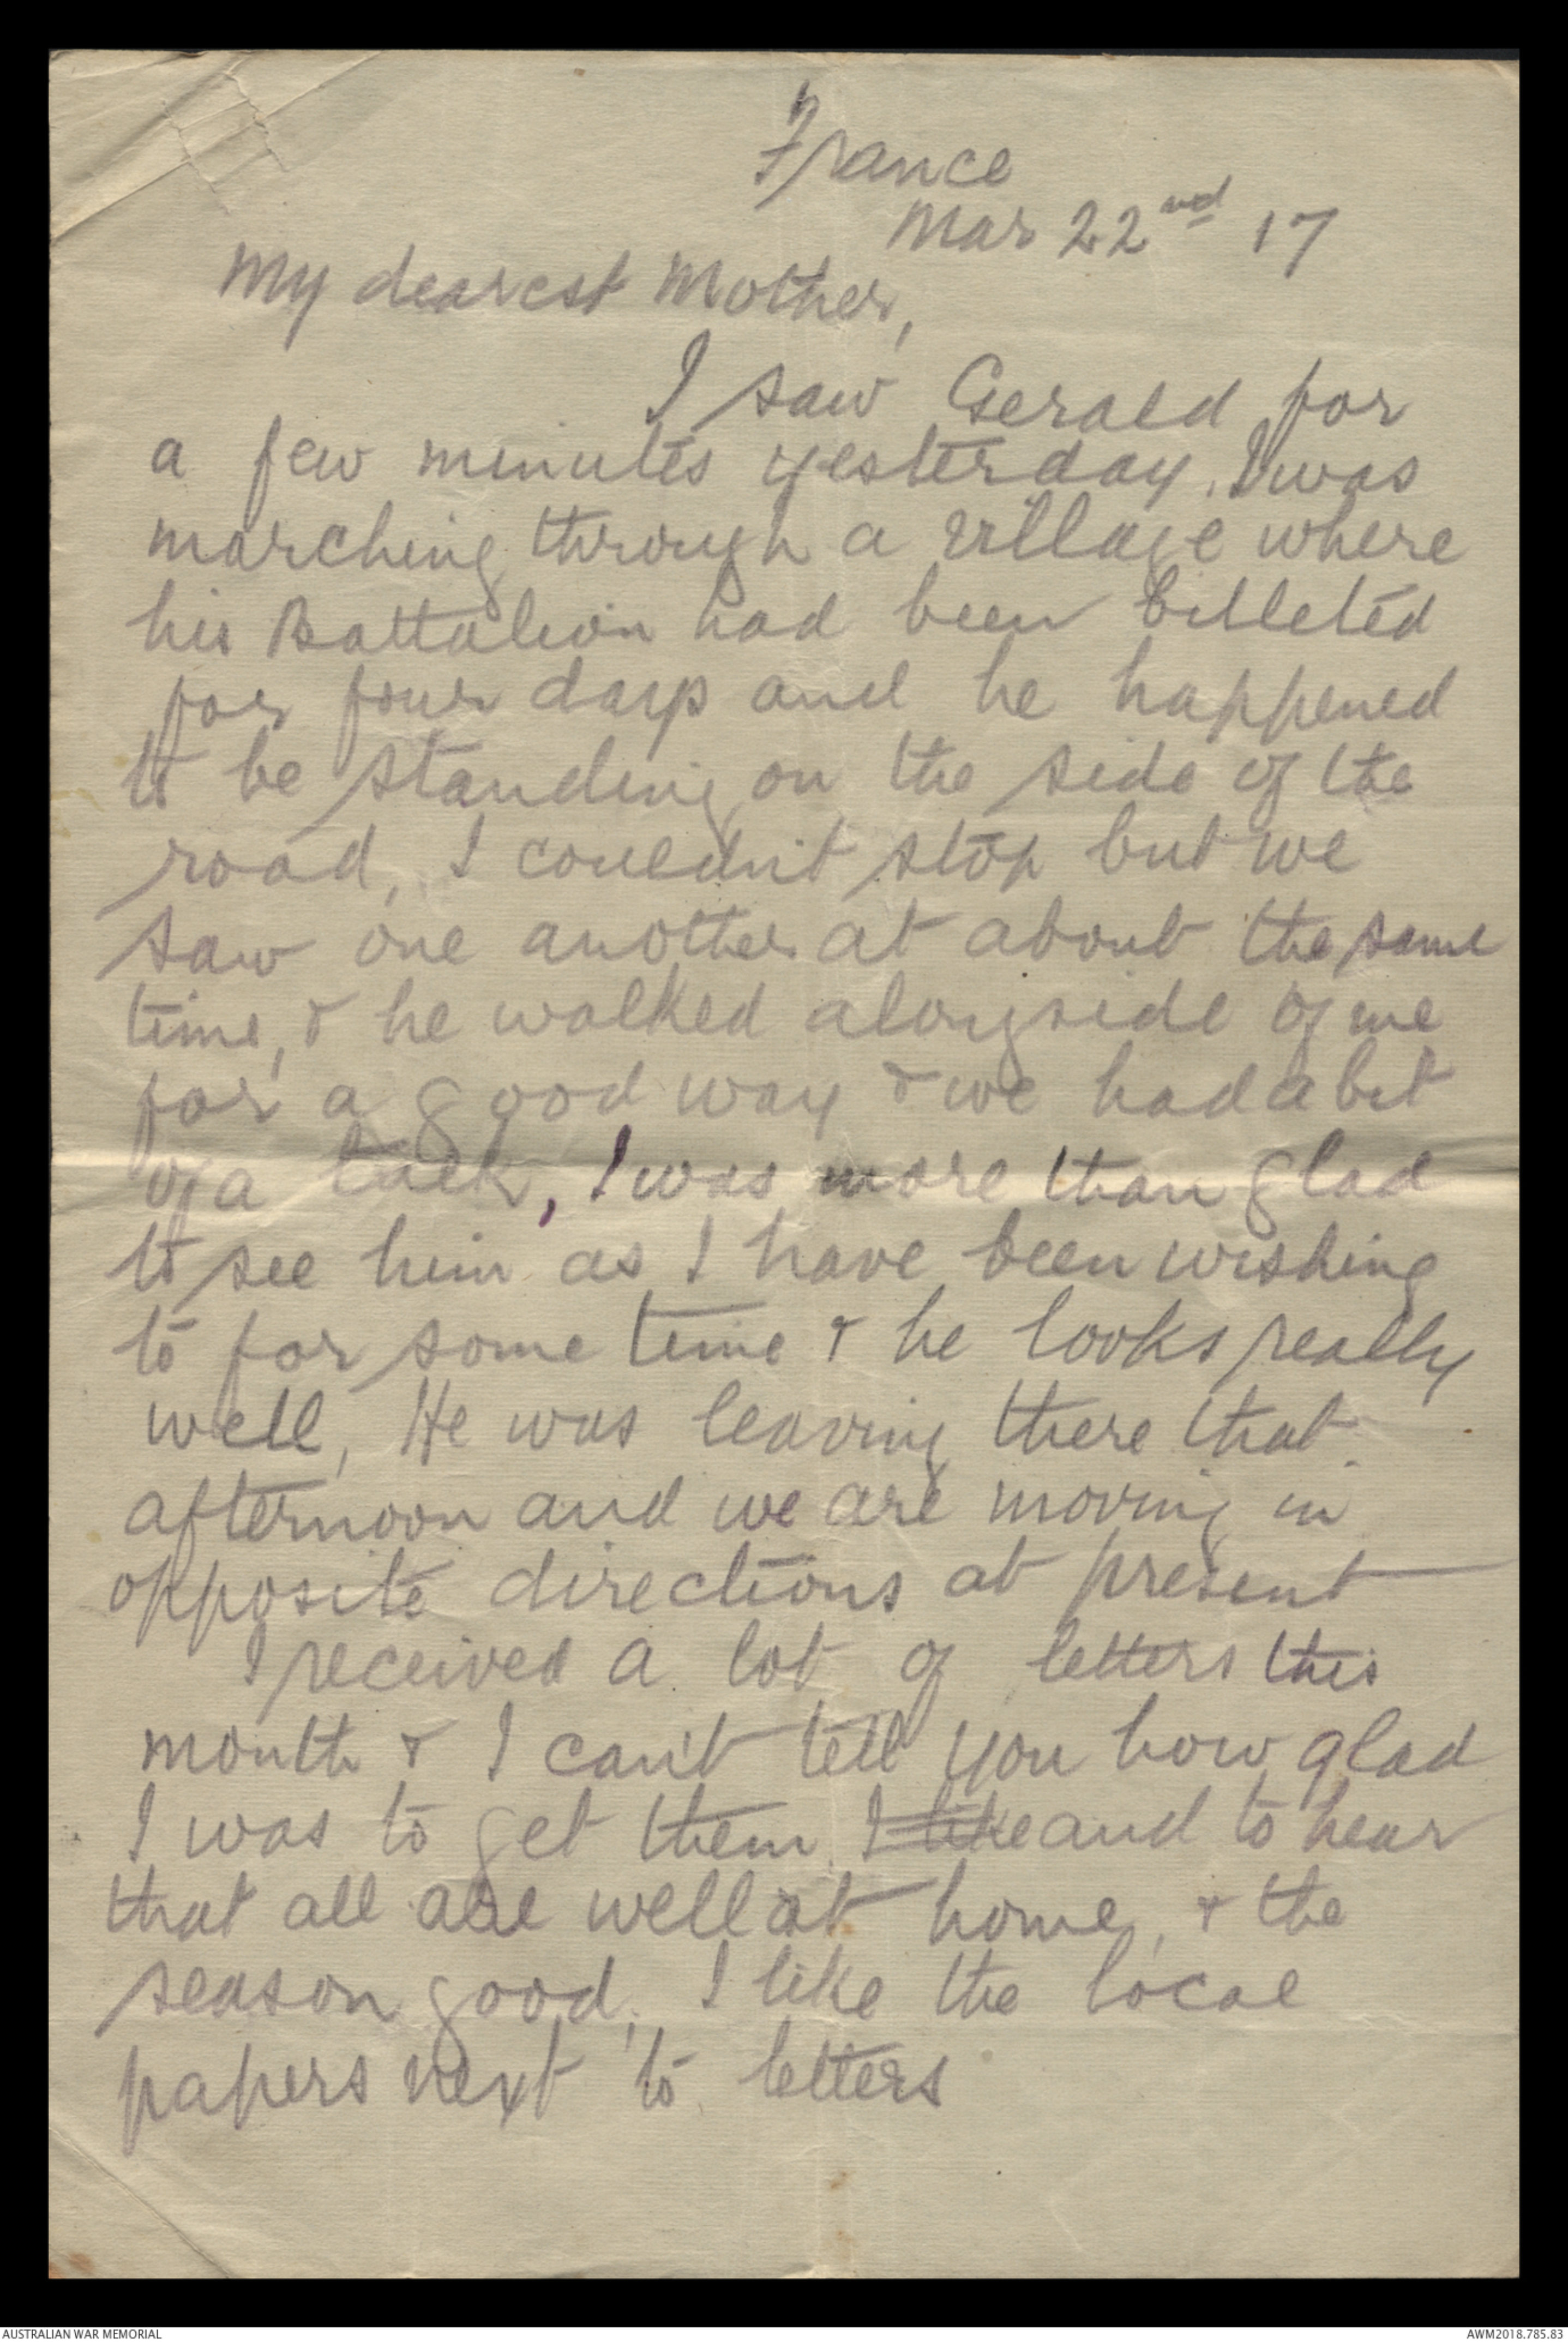 France
Mar 22nd 17
My dearest Mother,
I saw Gerald for
a few minutes yesterday. I was
marching through a village where
his Battalion had been billeted
for four days and he happened
to be standing on the side of the
road, I couldn't stop but we
saw one another at about the same
time, & he walked alongside of me
for a good way & we had a bit
of a talk, I was more than glad
to see him as I have been wishing
to for some time & he looks really
well, He was leaving there that
afternoon and we are moving in
opposite directions at present
I received a lot of letters this
month & I can't tell you how glad
I was to get them. I like and to hear
that all are well at home, & the
season good, I like the local
papers next to letters
AUSTRALIAN WAR MEMORIAL
AWM2018.785.83